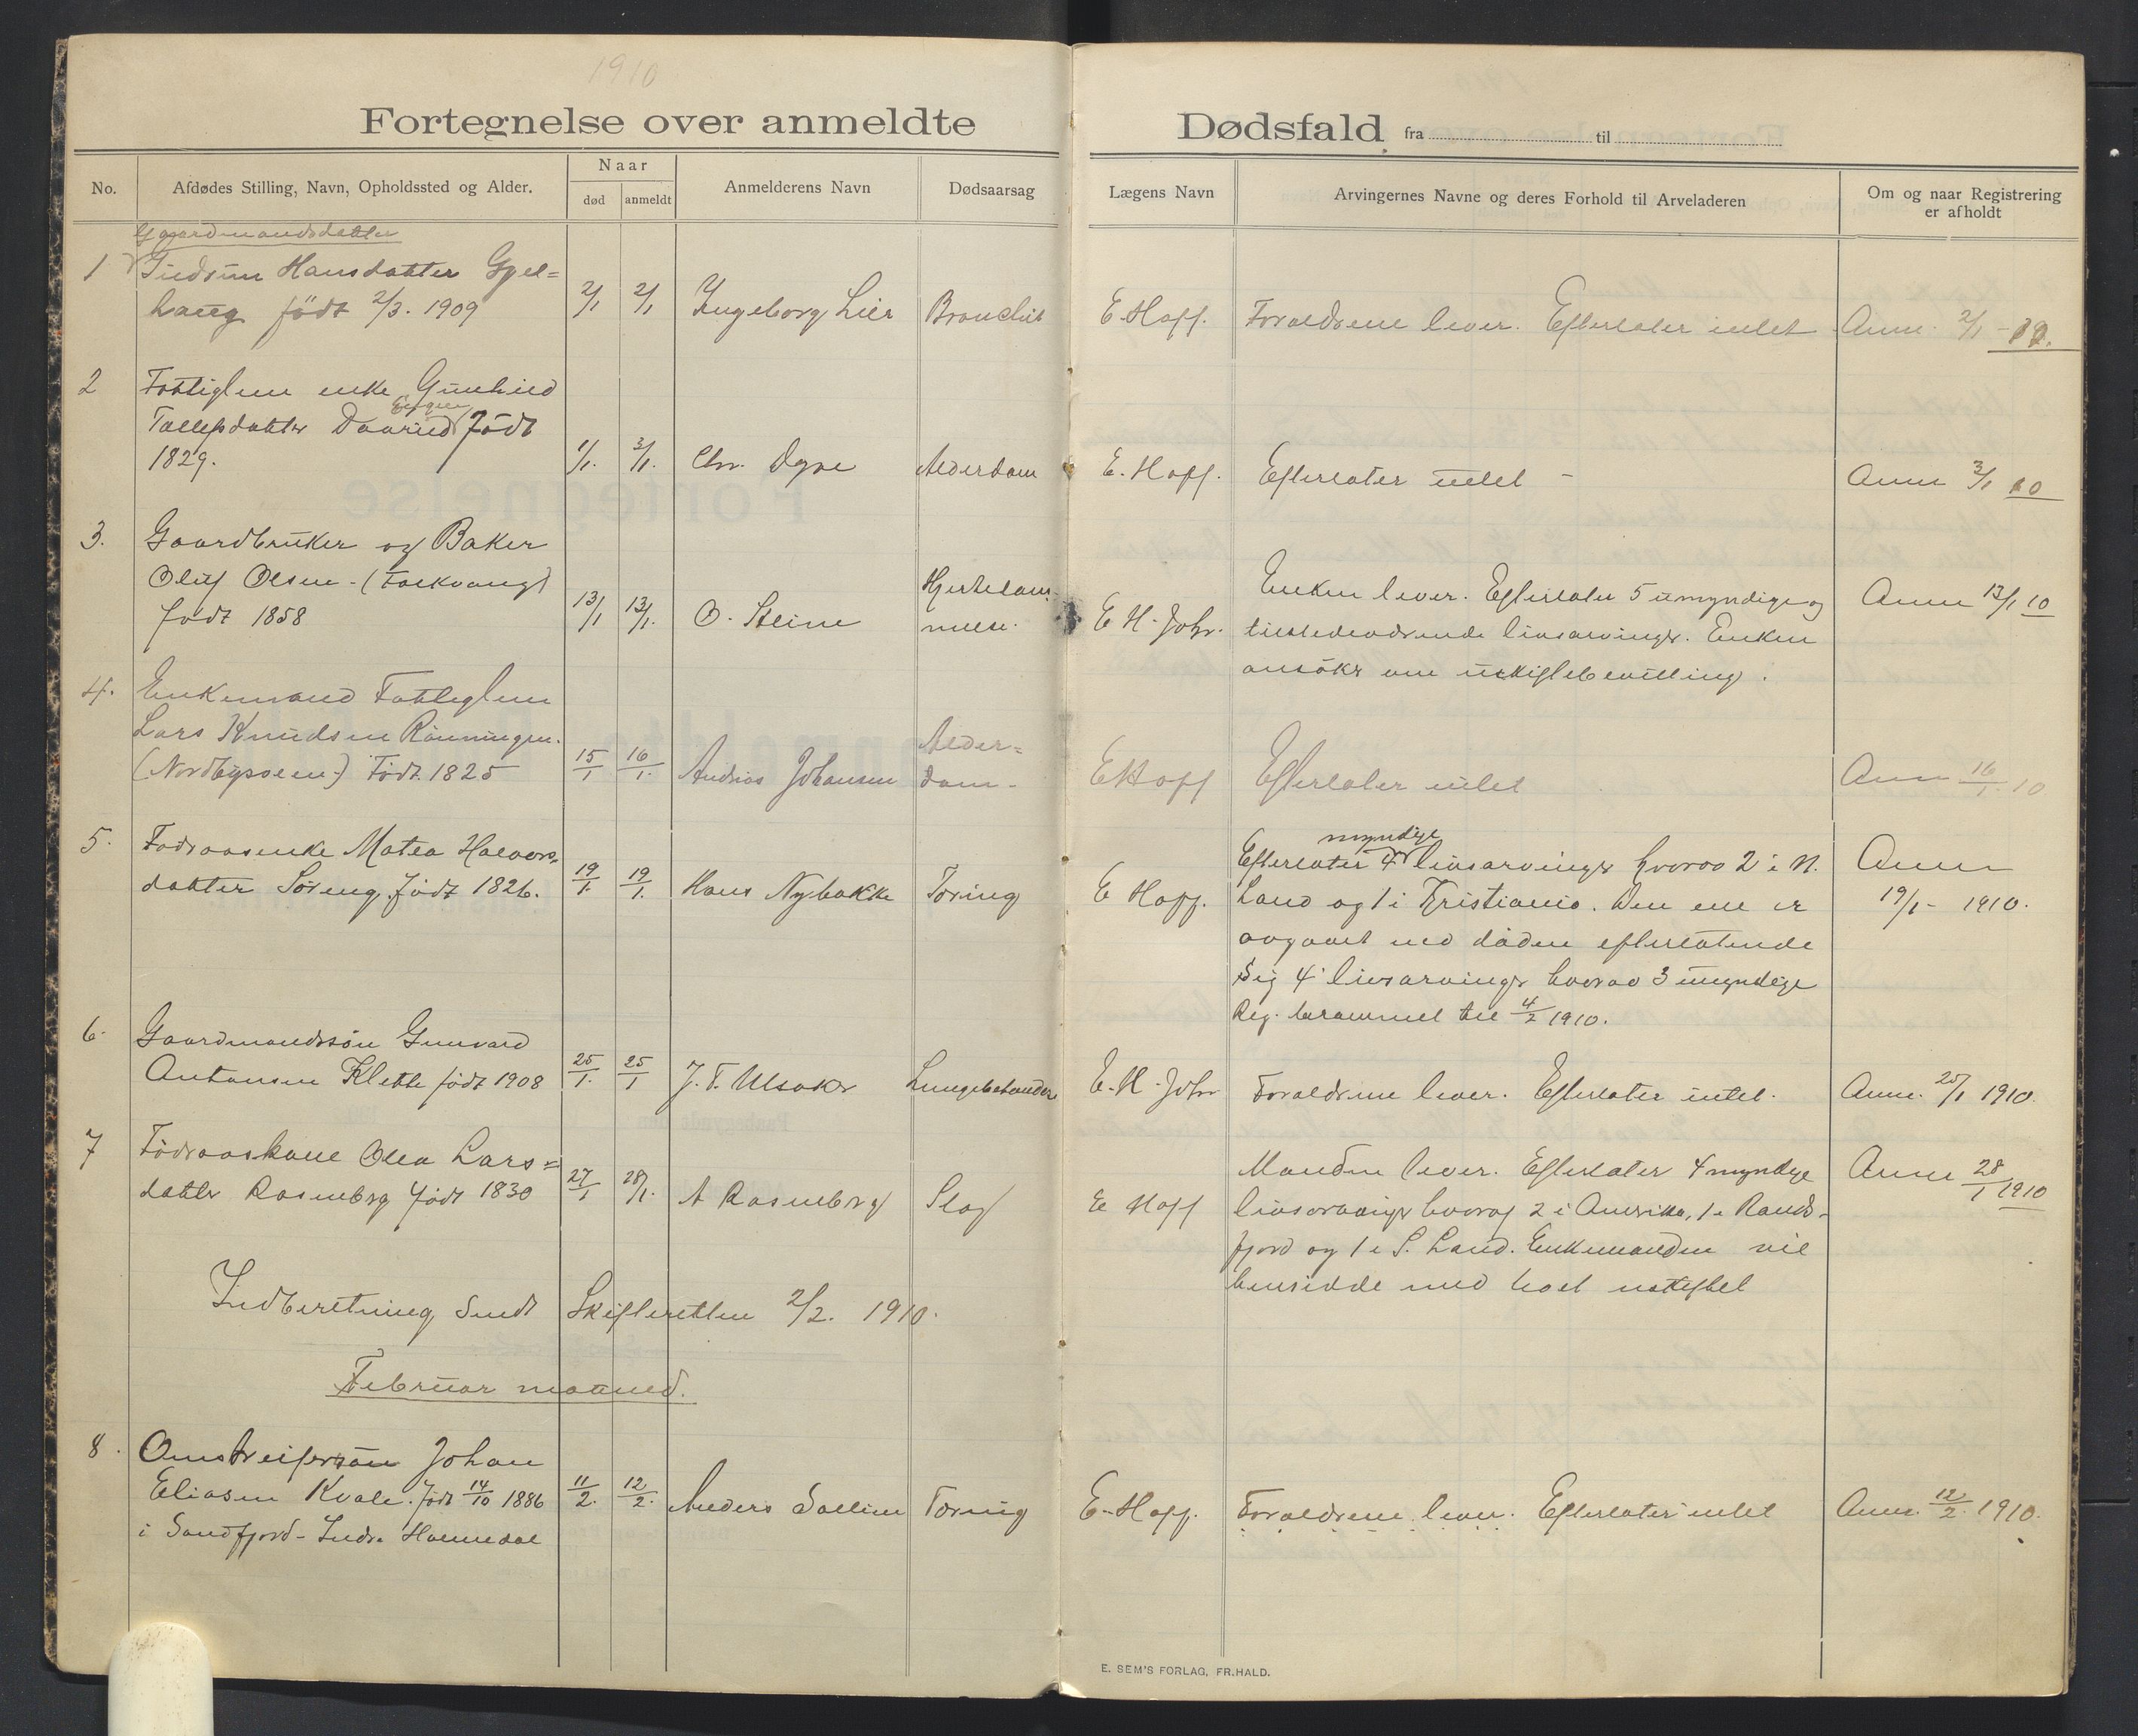 1910
Fortegnelse over anmeldte Dødsfald fra til
No.
Afdødes Stilling, Navn, Opholdssted og Alder.
Naar
død
anmeldt
Anmelderens Navn
Dødsaarsag
Lægens Navn
Arvingernes Navne og deres Forhold til Arveladeren
Om og naar Registrering
er afholdt
Gaardmandsdatter
1 Hansdatter Gjel=
haug født 2/3. 1909 2/1 2/1 Ingeborg Lier E. Hoff. Forældrene lever. Efterlater intet Anm. 2/1 -
2 Fattiglem enke Gunhild
datter født
1829. 1/1. 3/1. Chr. Alderdom E. Hoff. Efterlater intet - Anm 3/1 10
3. Gaardbruker og Baker
Oluf Olsen - (Falkvang)
født 1858 13/1 13/1. O. Steine Hjertelam-
melse. E H. Johr.
Enken lever. Efterlater 5 umyndige og
tilstedeværende livsarvinger. Enken
ansøker om uskiftebevilling.
Anm 13/1 10
4. Enkemand Fattiglem
Lars Knudsen Rønningen.
(Nordbysven-) Født 1825 15/1 16/1. Andreas Johansen Alder=
dom. E Hoff Efterlater intet Anm 16/1. 10
5. Føderaadsenke Matea Halvors-
datter Søreng. født 1826. 19/1. 19/1. Hans Nybakke Tæring E Hoff.
myndige
Efterlater 4 livsarvinger hvorav 2 i N.
Land og 1 i Kristiania. Den ene er
avgaaet ved døden efterlatende
sig 4 livsarvinger hvorav 3 umyndige
Reg. berammet til 4/2 1910.
Anm
19/1 - 1910.
6. Gaardmandssøn Gunvald
Antonsen Klette født 1908 25/1. 25/1 J. T. Ulsaker Lungebetændelse E. H. Johr Forældrene lever. Efterlater intet. Anm. 25/1 1910.
7 Føderaadskone Olea Lars=
datter Rosenberg født 1830 27/1 28/1. A Rosenberg Slag E Hoff
Manden lever. Efterlater 4 myndige
livsarvinger hvoraf 2 i Amerika, 1 i Rands-
fjord og 1 i S. Land. Enkemanden vil
hensidde med boet uskiftet
Anm 28/1 1910
Indberetning sendt Skifteretten 2/2. 1910.
Februar maaned.
8. Omstreifersøn Johan
Eliasen Kvale. født 14/10 1886
i Sandfjord - Indre Holmedal 11/2. 12/2. Anders Sollien Tæring E. Hoff. Forældrene lever. Efterlater intet Anm. 12/2. 1910.
E. SEM'S FORLAG, FR.HALD.